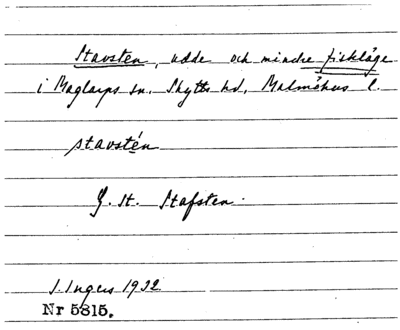 Stavsten, udde och mindre fiskläge
i Maglarps sn. Skytts hd, Malmöhus l.
stavstén
G. St. Stafsten.
I. Ingers 1932
Nr 5815.